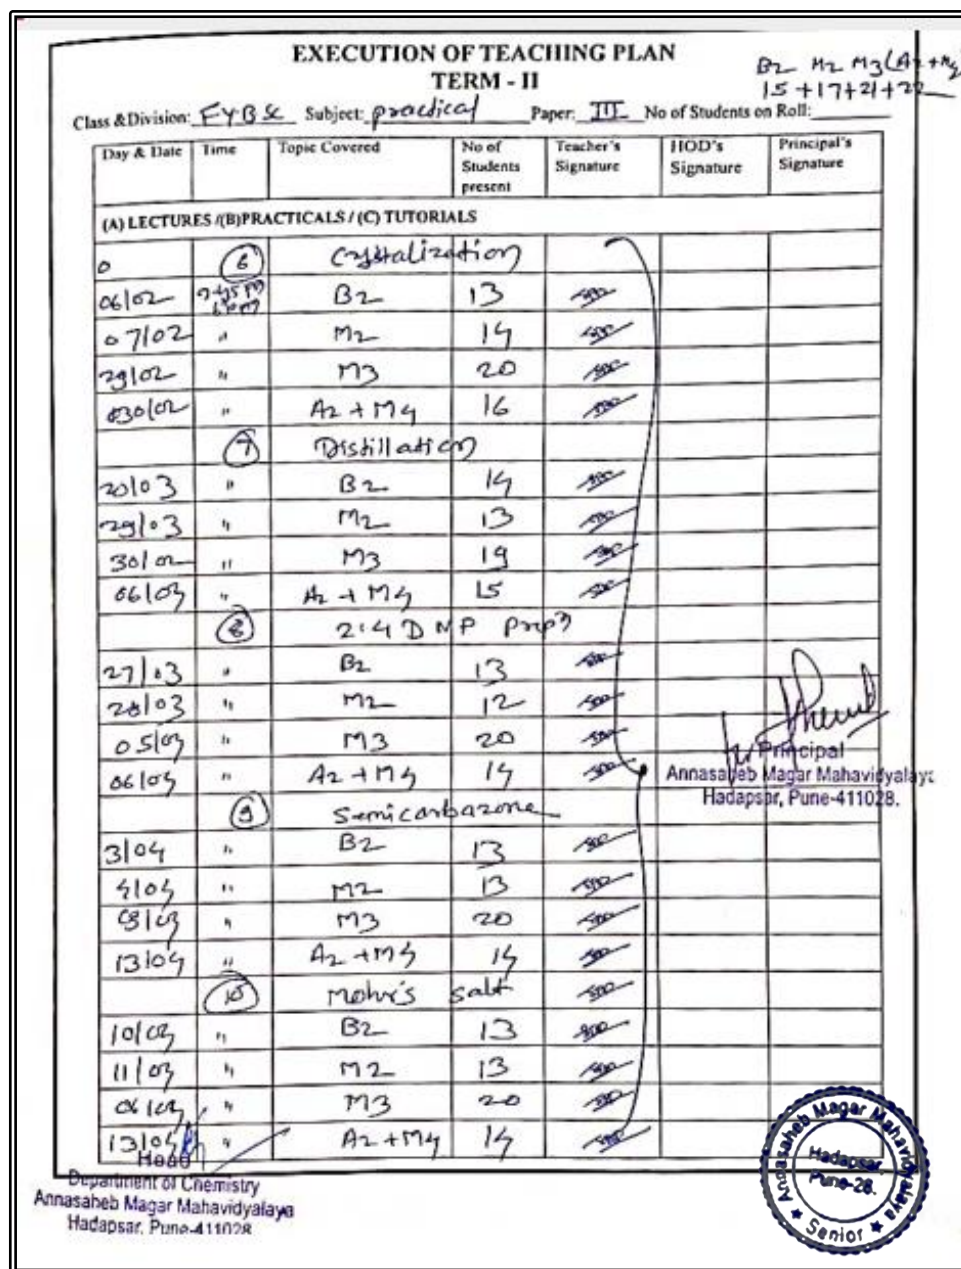 EXECUTION OF TEACHING PLAN
TERM - II
B2 M2 M3 (A2+M4)
15+17+21+22
Class & Division: FYBSc Subject: practical Paper: III No of Students on Roll:
Day & Date Time Topic Covered No of Students present Teacher's Signature HOD's Signature Principal's Signature
(A) LECTURES /(B)PRACTICALS / (C) TUTORIALS
0 6 Crystalization
06/02 B2 13
07/02 " M2 14
29/02 " M3 20
030/02 " A2 + M4 16
7 Distillation
20/03 " B2 14
29/03 " M2 13
30/02 " M3 19
06/04 " A2 + M4 15
8 2:4 DNP
27/03 " B2 13
28/03 " M2 12
05/04 " M3 20
06/04 " A2 + M4 14
9 Semicarbazone
3/04 " B2 13
4/04 " M2 13
" M3 20
13/04 " A2 + M4 14
10 Mohr's salt
10/04 " B2 13
11/04 " M2 13
06/04 " M3 20
13/04 " A2 + M4 14
Principal
Annasaheb Magar Mahavidyalaya
Hadapsar, Pune-411028.
Head
Department of Chemistry
Annasaheb Magar Mahavidyalaya
Hadapsar, Pune-411028
Annasaheb Magar Mahavidyalaya
Hadapsar,
Pune-28.
Senior